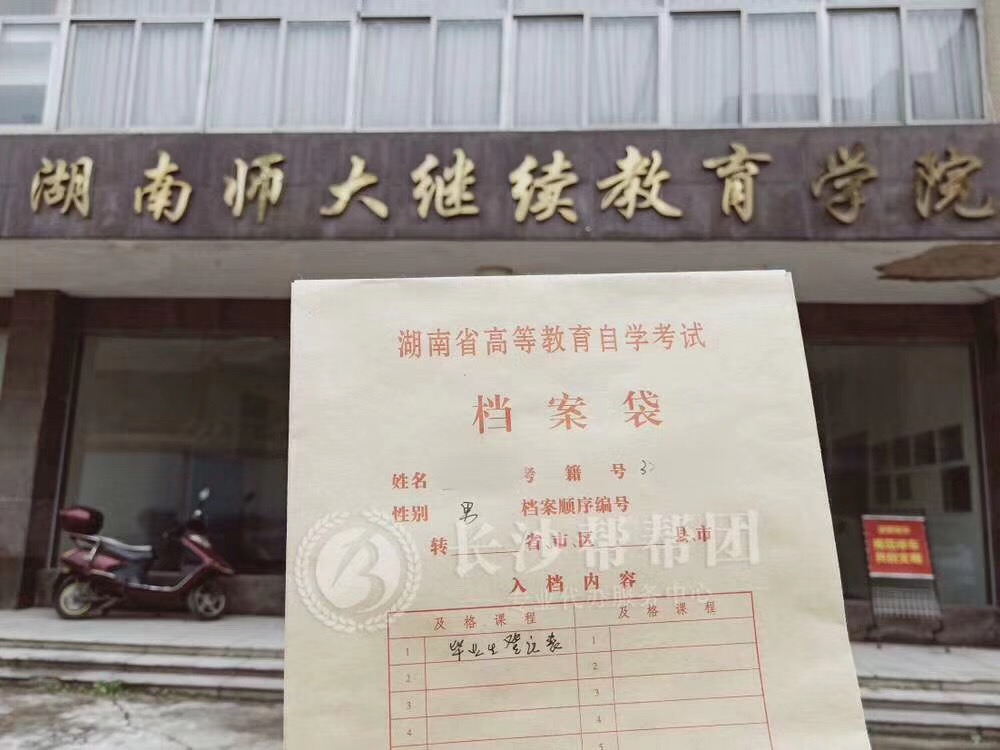 湖南师大继续教育学院
湖南省高等教育自学考试
档案袋
姓名 考籍号 3
性别 男 档案顺序编号
转 省市区 县市
长沙帮帮团
入档内容
及格课程 及格课程
1 毕业生登记表 1
2 2
3 3
4 4
5